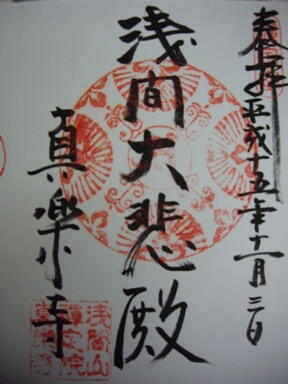 奉拝 平成十五年十一月三日
浅間大悲殿
真楽寺
浅間山